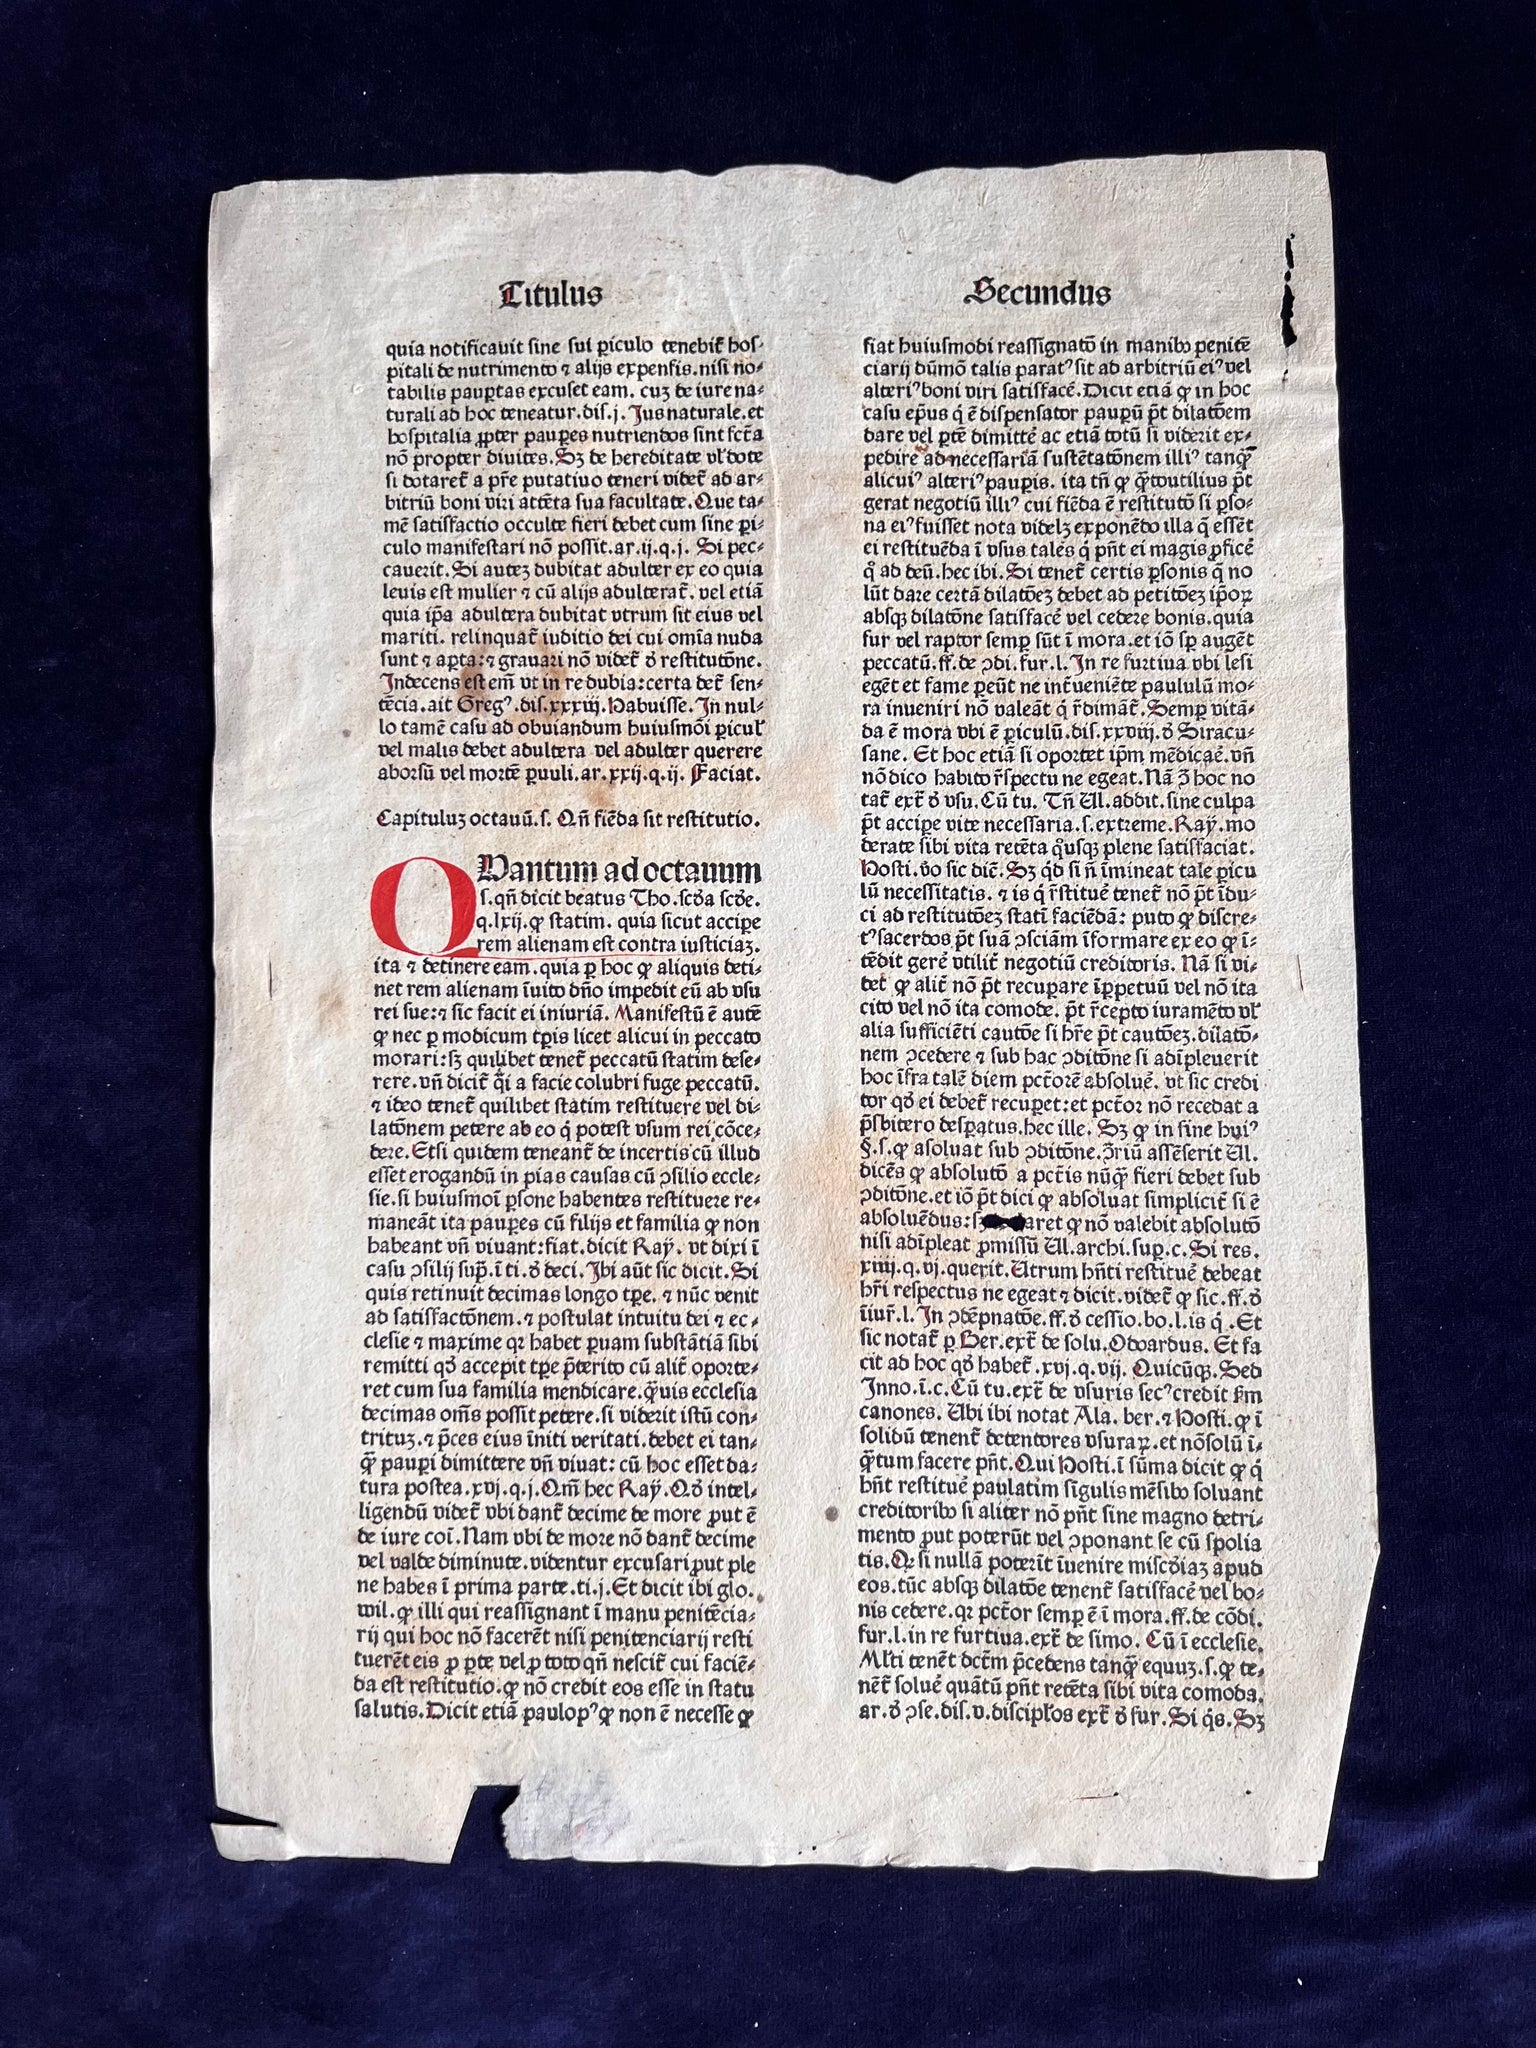 Titulus
quia notificauit sine sui ꝑiculo tenebit̃ hoſ⸗
pitali de nutrimento ⁊ alijs expenſis. niſi no⸗
tabilis paupertas excuſet eam. cuꝫ de iure na⸗
turali ad hoc teneatur. diſ. j. Jus naturale. et
hoſpitalia ꝓpter pauꝑes nutriendos ſint fct̃a
nõ propter diuites. Sꝫ de hereditate vl̓ dote
ſi dotaret̃ a pr̃e putatiuo teneri videt̃ ad ar⸗
bitriũ boni viri attẽta ſua facultate. Que ta⸗
mẽ ſatiſfactio occulte fieri debet cum ſine ꝑi⸗
culo manifeſtari nõ poſſit. ar. ij. q. j. Si pec⸗
cauerit. Si auteꝫ dubitat adulter ex eo quia
leuis eſt mulier ⁊ cũ alijs adulterat̃. vel etiã
quia ip̃a adultera dubitat vtrum ſit eius vel
mariti. relinquat̃ iuditio dei cui om̃ia nuda
ſunt ⁊ aꝑta: ⁊ grauari nõ videt̃ ꝺ̓ reſtitutõne.
Indecens eſt em̃ vt in re dubia: certa det̃ ſen⸗
tẽcia. ait Gregꝰ. diſ. xxxiij. Habuiſſe. In nul⸗
lo tamẽ caſu ad obuiandum huiuſmõi ꝑicul̓
vel malis debet adultera vel adulter querere
aborſũ vel mortẽ ꝑuuli. ar. xxij. q. ij. Faciat.
Capituluꝫ octauũ. ſ. Qñ fiẽda ſit reſtitutio.
QVantum ad octauum
ſ. qñ dicit beatus Tho. ſcꝺ̓a ſcꝺ̓e.
q. lxij. ꝙ ſtatim. quia ſicut acciꝑe
rem alienam eſt contra iuſticiaꝫ.
ita ⁊ detinere eam. quia ꝑ hoc ꝙ aliquis deti⸗
net rem alienam ĩuito dño impedit eũ ab vſu
rei ſue: ⁊ ſic facit ei iniuriã. Manifeſtũ ẽ autẽ
ꝙ nec ꝑ modicum tꝑis licet alicui in peccato
morari: ſꝫ quilibet tenet̃ peccatũ ſtatim deſe⸗
rere. vñ dicit̃ q̃ſi a facie colubri fuge peccatũ.
⁊ ideo tenet̃ quilibet ſtatim reſtituere vel di⸗
latõnem petere ab eo q́ poteſt vſum rei cõce⸗
dere. Etſi quidem teneant̃ de incertis cũ illud
eſſet erogandũ in pias cauſas cũ ↄſilio eccle⸗
ſie. ſi huiuſmoĩ ꝑſone habentes reſtituere re⸗
maneãt ita pauꝑes cũ filijs et familia ꝙ non
habeant vñ viuant: fiat. dicit Raẏ. vt dixi ĩ
caſu ↄſilij ſup̃. ĩ ti. ꝺ̓ deci. Ibi aũt ſic dicit. Si
quis retinuit decimas longo tꝑe. ⁊ nũc venit
ad ſatiſfactõnem. ⁊ poſtulat intuitu dei ⁊ ec⸗
cleſie ⁊ maxime qꝛ habet ꝑuam ſubſtãtiã ſibi
remitti qꝺ̓ accepit tꝑe p̃terito cũ alit̃ oporte⸗
ret cum ſua familia mendicare. q̃uis eccleſia
decimas om̃s poſſit petere. ſi viderit iſtũ con⸗
trituꝫ. ⁊ p̃ces eius ĩniti veritati. debet ei tan⸗
q̃ȝ pauꝑi dimittere vñ viuat: cũ hoc eſſet da⸗
tura poſtea. xvj. q. j. Qm̃ hec Raẏ. Qꝺ̓ intel⸗
ligendũ videt̃ vbi dant̃ decime de more ꝓut ẽ
de iure coĩ. Nam vbi de more nõ dant̃ decime
vel valde diminute. videntur excuſari ꝓut ple
ne habes ĩ prima parte. ti. j. Et dicit ibi glo.
wil. ꝙ illi qui reaſſignant ĩ manu penitẽcia⸗
rij qui hoc nõ facerẽt niſi penitenciarij reſti
tuerẽt eis ꝓ ꝑte vel ꝓ toto qñ neſcit̃ cui faciẽ⸗
da eſt reſtitutio. ꝙ nõ credit eos eſſe in ſtatu
ſalutis. Dicit etiã paulopꝰ ꝙ non ẽ neceſſe ꝙ
Secundus
fiat huiuſmodi reaſſignatõ in manibꝰ penitẽ
ciarij dũmõ talis paratꝰ ſit ad arbitriũ eiꝰ vel
alteriꝰ boni viri ſatiſfacẽ. Dicit etiã ꝙ in hoc
caſu ep̃us q́ ẽ diſpenſator pauꝑũ p̃t dilatõem
dare vel ꝑtẽ dimittẽ ac etiã totũ ſi viderit ex⸗
pedire ad neceſſariã ſuſtẽtatõnem illiꝰ tanq̃ȝ
alicuiꝰ alteriꝰ pauꝑis. ita tñ ꝙ q̃ȝtoutilius p̃t
gerat negotiũ illiꝰ cui fiẽda ẽ reſtitutõ ſi ꝑſo⸗
na eiꝰ fuiſſet nota videlꝫ exponẽdo illa q̃ eſſẽt
ei reſtituẽda ĩ vſus tales q́ pñt ei magis ꝓficẽ
q̊ ad deũ. hec ibi. Si tenet̃ certis ꝑſonis q̃ no
lũt dare certã dilatõeꝫ debet ad petitõeꝫ ip̃oꝝ
abſqꝫ dilatõne ſatiſfacẽ vel cedere bonis. quia
fur vel raptor ſemꝑ ſũt ĩ mora. et iõ ſꝑ augẽt
peccatũ. ff. de ↄdi. fur. l. In re furtiua vbi leſi
egẽt et fame pereũt ne int̃ueniẽte paululũ mo⸗
ra inueniri nõ valeãt q́ r̃dimãt̃. Semꝑ vitã⸗
da ẽ mora vbi ẽ ꝑiculũ. diſ. xxviij. ꝺ̓ Siracu⸗
ſane. Et hoc etiã ſi oportet ip̃m mẽdicaẽ. vñ
nõ dico habito r̃ſpectu ne egeat. Nã ꝯ̃ hoc no
tat̃ ext̃ ꝺ̓ vſu. Cũ tu. Tñ Ul. addit. ſine culpa
p̃t acciꝑe vite neceſſaria. ſ. extreme. Raẏ. mo
derate ſibi vita retẽta q̊uſqꝫ plene ſatiſfaciat.
Hoſti. v̓o ſic dicẽ. Sꝫ qꝺ̓ ſi ñ ĩmineat tale ꝑicu
lũ neceſſitatis. ⁊ is q́ r̃ſtituẽ tenet̃ nõ p̃t ĩdu⸗
ci ad reſtitutõeꝫ ſtatĩ faciẽdã: puto ꝙ diſcre⸗
tꝰ ſacerdos p̃t ſuã ↄſciãm ĩformare ex eo ꝙ ĩ⸗
tẽdit gerẽ vtilit̃ negotiũ creditoris. Nã ſi vi⸗
det ꝙ alit̃ nõ p̃t recuꝑare ĩꝑpetuũ vel nõ ita
cito vel nõ ita comode. p̃t r̃cepto iuramẽto vl̓
alia ſufficiẽti cautõe ſi hr̃e p̃t cautõeꝫ. dilatõ⸗
nem ↄcedere ⁊ ſub hac ↄditõne ſi adĩpleuerit
hoc ĩfra talẽ diem pct̃orẽ abſoluẽ. vt ſic credi
tor qꝺ̓ ei debet̃ recuꝑet: et pct̃or nõ recedat a
p̃ſbitero deſꝑatus. hec ille. Sꝫ ꝙ in fine huiꝰ
§. ſ. ꝙ aſoluat ſub ↄditõne. ꝯ̃riũ aſſẽſerit Ul.
dicẽs ꝙ abſolutõ a pct̃is nũqȝ fieri debet ſub
ↄditõne. et iõ p̃t dici ꝙ abſoluat ſimplicit̃ ſi ẽ
abſoluẽdus: ſꝫ aret ꝙ nõ valebit abſolutõ
niſi adĩpleat ꝓmiſſũ Ul. archi. ſup. c. Si res.
xiiij. q. vj. querit. Utrum hñti reſtituẽ debeat
hr̃i reſpectus ne egeat ⁊ dicit. videt̃ ꝙ ſic. ff. ꝺ̓
ĩiur̃. l. In ↄdẽpnatõe. ff. ꝺ̓ ceſſio. bo. l. is q́. Et
ſic notat̃ ꝑ Ber. ext̃ de ſolu. Odoardus. Et fa
cit ad hoc qꝺ̓ habet̃. xvj. q. vij. Quicũqꝫ. Sed
Inno. ĩ. c. Cũ tu. ext̃ de vſuris ſecꝰ credit ẜm
canones. Ubi ibi notat Ala. ber. ⁊ Hoſti. ꝙ ĩ
ſolidũ tenent̃ detentores vſuraꝝ. et nõſolũ ĩ⸗
q̃ȝtum facere pñt. Qui Hoſti. ĩ ſũma dicit ꝙ q́
hñt reſtituẽ paulatim ſigulis mẽſibꝰ ſoluant
creditoribꝰ ſi aliter nõ pñt ſine magno detri⸗
mento ꝓut poterũt vel ↄponant ſe cũ ſpolia
tis. Qꝛ ſi nullã poterĩt ĩuenire miſcꝺ̓iaꝫ apud
eos. tũc abſqꝫ dilatõe tenent̃ ſatiſfacẽ vel bo⸗
nis cedere. qꝛ pct̃or ſemꝑ ẽ ĩ mora. ff. de cõdi.
fur. l. in re furtiua. ext̃ de ſimo. Cũ ĩ eccleſie.
Ml̓ti tenẽt dct̃m p̃cedens tanq̃ȝ equuꝫ. ſ. ꝙ te⸗
nẽt̃ ſoluẽ quãtũ pñt retẽta ſibi vita comoda.
ar. ꝺ̓ ↄſe. diſ. v. diſcipl̓os ext̃ ꝺ̓ fur. Si q́s. Sꝫ